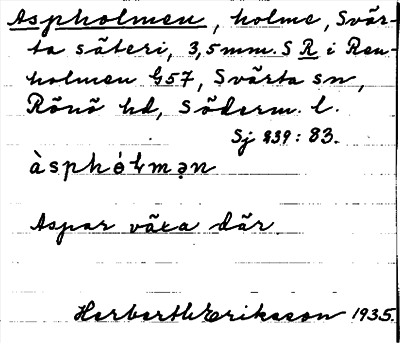 Aspholmen, holme, Svär-
ta säteri, 3,5 mm. S R i Ren-
holmen G57, Svärta sn,
Rönö hd, Söderm. l.
Sj 839: 83.
àsphólmən
Aspar växa där
Herberth Eriksson 1935.